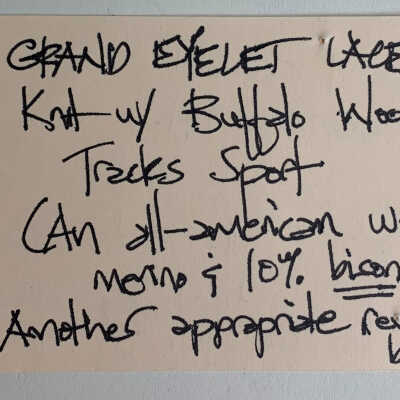 GRAND EYELET LACE
Knit w/ Buffalo Woo
Tracks Sport
(An all-american w
merino & 10% bison
Another appropriate re